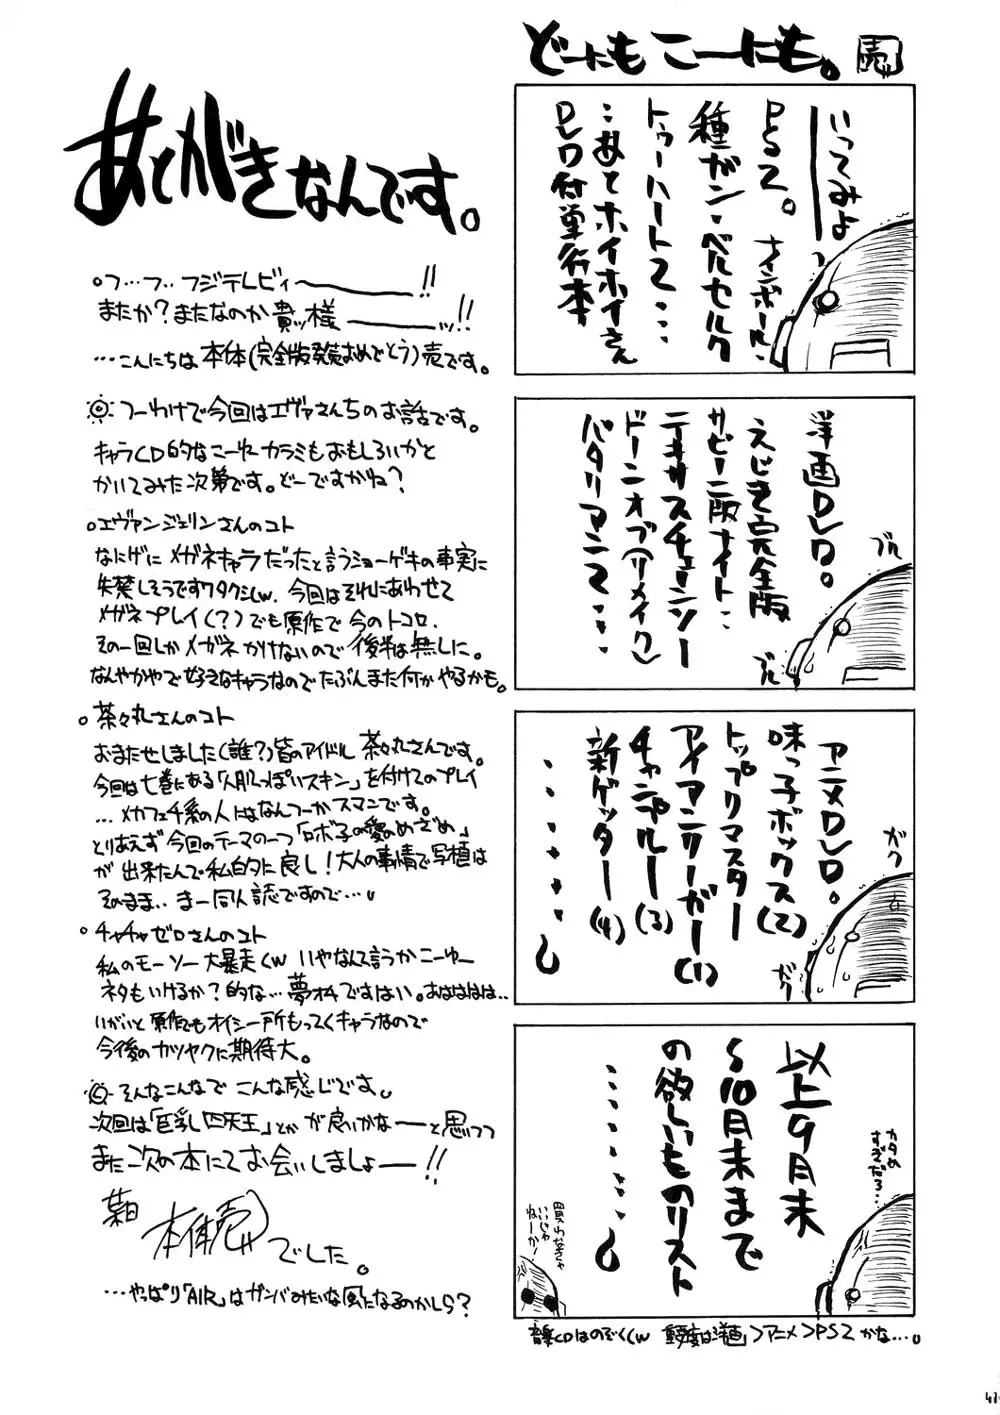 どーにもこーにも。売
いってみよ
PS2。ナインボール・
種ガン・ベルセルク
トゥーハート2・・・
・・あとホイホイさん
DVD付単行本
洋画DVD。
えじき完全版
サビーニ版ナイト・・
テキサスチェーンソー
ドーンオブ(リメイク)
バタリアン2・・・
ブル
ブル
アニメDVD。
味っ子ボックス(2)
トップリマスター
アイアンリーガー(1)
チャンプルー(3)
新ゲッター(4)
・・・・・・。
ガク
ガク
以上9月末
〜10月末まで
の欲しいものリスト
・・・・・・。
カタめ
すぎだろ…
買わなきゃ
いいじゃ
ねーか!
音楽CDはのぞくw 重要度は洋画>アニメ>PS2かな…。
あとがきなんです。
○フ…フ…フジテレビィ〜———!!
またか?またなのか貴ッ様———ッ!!
…こんにちは本体(完全版発売おめでとう)売です。
つーわけで今回はエヴァさんちのお話です。
キャラCD的なこーゆーカラミもおもしろいかと
かいてみた次第です。どーですかね?
○エヴァンジェリンさんのコト
なにげにメガネキャラだったと言うショーゲキの事実に
失禁しそうですワタクシw. 今回はそれにあわせて
メガネプレイ(?)でも原作で今のトコロ.
その一回しかメガネかけないので後半は無しに。
なんやかやで好きなキャラなのでたぶんまた何かやるかも。
○茶々丸さんのコト
おまたせしました(誰?)皆のアイドル茶々丸さんです。
今回は七巻にある「人肌っぽいスキン」を付けてのプレイ
…メカフェチ系の人にはなんつーかスマンです。
とりあえず今回のテーマの一つ「ロボ子の愛のめざめ」
が出来たんで私的に良し!大人の事情で写植は
そのまま..まー同人誌ですので…。
○チャチャゼロさんのコト
私のモーソー大暴走w いやなんて言うかこーゆー
ネタもいけるか?的な…夢オチですはい。あはははは..
いがいと原作でもオイシー所もってくキャラなので
今後のカツヤクに期待大。
そんなこんなでこんな感じです。
次回は「巨乳四天王」とかが良いかなーと思いつつ
また次の本にてお会いしましょー!!
本体売でした。
…やっぱり「AIR」はガンバみたいな風になるのかしら?
41